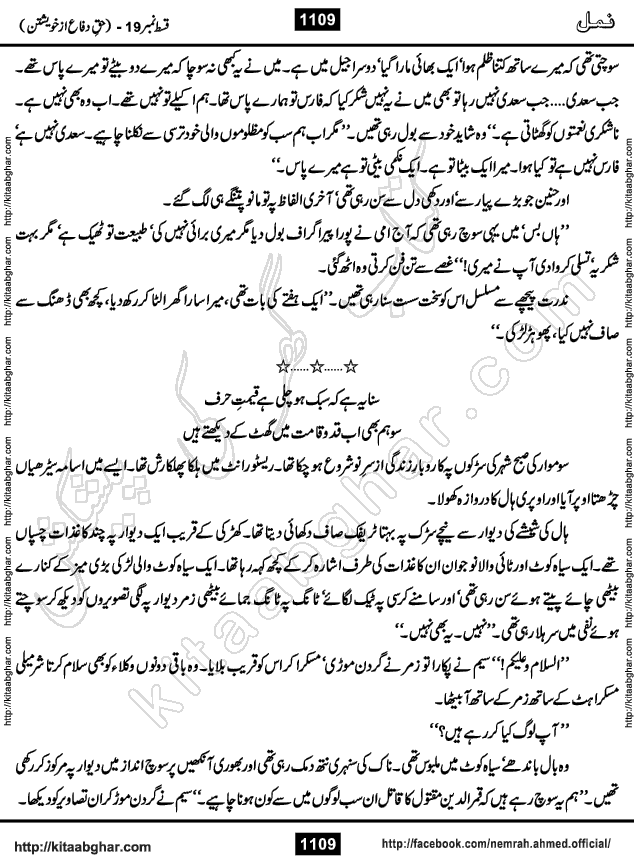 قسط نمبر 19 - (حقِ دفاع از خویشتن)
1109
نمل
سوچتی تھی کہ میرے ساتھ کتنا ظلم ہوا‘ ایک بھائی مارا گیا‘ دوسرا جیل میں ہے۔ میں نے یہ کبھی نہ سوچا کہ میرے دو بیٹے تو میرے پاس تھے۔
جب سعدی.... جب سعدی نہیں رہا تو بھی میں نے یہ نہیں شکر کیا کہ فارس تو ہمارے پاس تھا۔ ہم اکیلے تو نہیں تھے۔ اب وہ بھی نہیں ہے۔
ناشکری نعمتوں کو گھٹاتی ہے۔‘‘ وہ شاید خود سے بول رہی تھیں۔ ’’مگر اب ہم سب کو مظلوموں والی خود ترسی سے نکلنا چاہیے۔ سعدی نہیں ہے‘
فارس نہیں ہے تو کیا ہوا۔ میرا ایک بیٹا تو ہے۔ ایک نکمی بیٹی تو ہے میرے پاس۔‘‘
اور حنین جو بڑے پیار سے‘ اور دکھی دل سے سن رہی تھی‘ آخری الفاظ پہ تو مانو پتنگے ہی لگ گئے۔
’’ہاں بس‘ میں یہی سوچ رہی تھی کہ آج امی نے پورا پیراگراف بول دیا مگر میری برائی نہیں کی‘ طبیعت تو ٹھیک ہے‘ مگر بہت
شکریہ‘ تسلی کروا دی آپ نے میری!‘‘ غصے سے تن فن کرتی وہ اٹھ گئی۔
ندرت پیچھے سے مسلسل اس کو سخت سست سنا رہی تھیں۔ ’’ایک ہفتے کی بات تھی، میرا سارا گھر الٹا کر رکھ دیا، کچھ بھی ڈھنگ سے
صاف نہیں کیا، پھوہڑ لڑکی۔‘‘
☆......☆......☆
سنا یہ ہے کہ سبک ہو چلی ہے قیمتِ حرف
سو ہم بھی اب قد و قامت میں گھٹ کے دیکھتے ہیں
سوموار کی صبح شہر کی سڑکوں پہ کاروبارِ زندگی از سرِ نو شروع ہو چکا تھا۔ ریسٹورانٹ میں ہلکا پھلکا رش تھا۔ ایسے میں اسامہ سیڑھیاں
چڑھتا اوپر آیا اور اوپری ہال کا دروازہ کھولا۔
ہال کی شیشے کی دیوار سے نیچے سڑک پہ بہتا ٹریفک صاف دکھائی دیتا تھا۔ کھڑکی کے قریب ایک دیوار پہ چند کاغذات چسپاں
تھے۔ ایک سیاہ کوٹ اور ٹائی والا نوجوان ان کاغذات کی طرف اشارہ کر کے کچھ کہہ رہا تھا۔ ایک سیاہ کوٹ والی لڑکی بڑی میز کے کنارے
بیٹھی چائے پیتے ہوئے سن رہی تھی‘ اور سامنے کرسی پہ ٹیک لگائے‘ ٹانگ پہ ٹانگ جمائے بیٹھی زمر دیوار پہ لگی تصویروں کو دیکھ کر سوچتے
ہوئے نفی میں سر ہلا رہی تھی۔ ’’نہیں۔ یہ بھی نہیں۔‘‘
’’السلام و علیکم!‘‘ سیم نے پکارا تو زمر نے گردن موڑی‘ مسکرا کر اس کو قریب بلایا۔ وہ باقی دونوں وکلاء کو بھی سلام کرتا شرمیلی
مسکراہٹ کے ساتھ زمر کے ساتھ آ بیٹھا۔
’’آپ لوگ کیا کر رہے ہیں؟‘‘
وہ بال باندھے‘ سیاہ کوٹ میں ملبوس تھی۔ ناک کی سنہری نتھ دمک رہی تھی اور بھوری آنکھیں پرسوچ انداز میں دیوار پہ مرکوز کر رکھی
تھیں۔ ’’ہم یہ سوچ رہے ہیں کہ قمر الدین مقتول کا قاتل ان سب لوگوں میں سے کون ہونا چاہیے۔‘‘ سیم نے گردن موڑ کر ان تصاویر کو دیکھا۔
http://kitaabghar.com
1109
http://facebook.com/nemrah.ahmed.official/
http://kitaabghar.com
http://kitaabghar.com
http://kitaabghar.com
http://kitaabghar.com
http://kitaabghar.com
http://kitaabghar.com
http://kitaabghar.com
http://kitaabghar.com
http://kitaabghar.com
http://kitaabghar.com
http://kitaabghar.com
http://kitaabghar.com
کتاب گھر کی پیشکش
kitaabghar.com